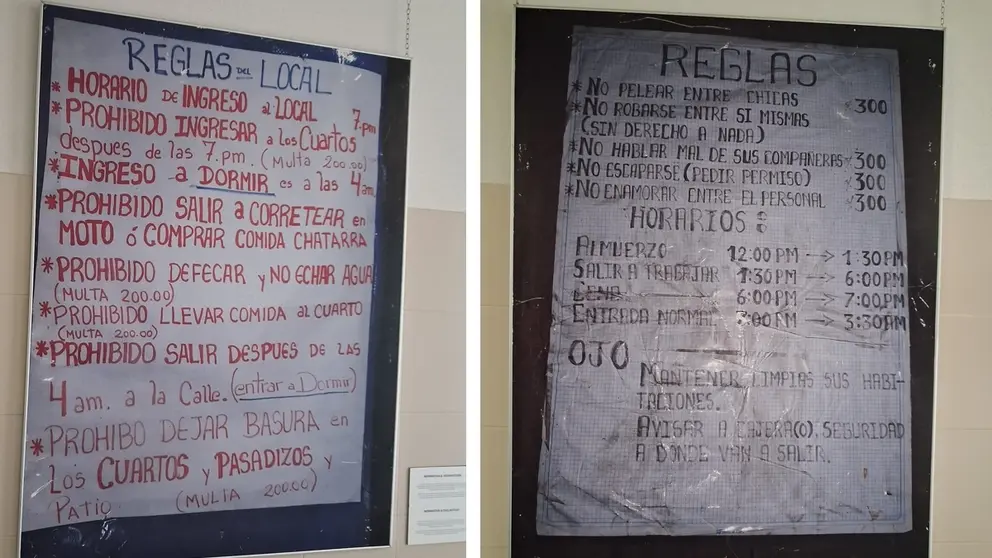 REGLAS DEL LOCAL
* HORARIO DE INGRESO al LOCAL 7.pm
* PROHIBIDO INGRESAR a los Cuartos
despues de las 7.pm. (Multa 200.00)
* INGRESO a DORMIR es a las 4am
* PROHIBIDO SALIR a CORRETEAR en
MOTO ó COMPRAR COMIDA CHATARRA
* PROHIBIDO DEFECAR y NO ECHAR AGUA
(MULTA 200.00)
* PROHIBIDO LLEVAR COMIDA al CUARTO
(MULTA 200.00)
* PROHIBIDO SALIR DESPUES DE LAS
4am. a la Calle. (entrar a Dormir)
* PROHIBO DEJAR BASURA en
Los CUARTOS y PASADIZOS y
Patio (MULTA 200.00)
REGLAS
* NO PELEAR ENTRE CHICAS 300
* NO ROBARSE ENTRE SI MISMAS
(SIN DERECHO A NADA)
* NO HABLAR MAL DE SUS COMPAÑERAS 300
* NO ESCAPARSE (PEDIR PERMISO) 300
* NO ENAMORAR ENTRE EL PERSONAL 300
HORARIOS:
ALMUERZO 12:00 PM → 1:30 PM
SALIR A TRABAJAR 1:30 PM → 6:00 PM
CENA 6:00 PM → 7:00 PM
ENTRADA NORMAL 7:00 PM → 3:30 AM
OJO
MANTENER LIMPIAS SUS HABI-
TACIONES.
AVISAR A CAJERA(O), SEGURIDAD
A DONDE VAN A SALIR.